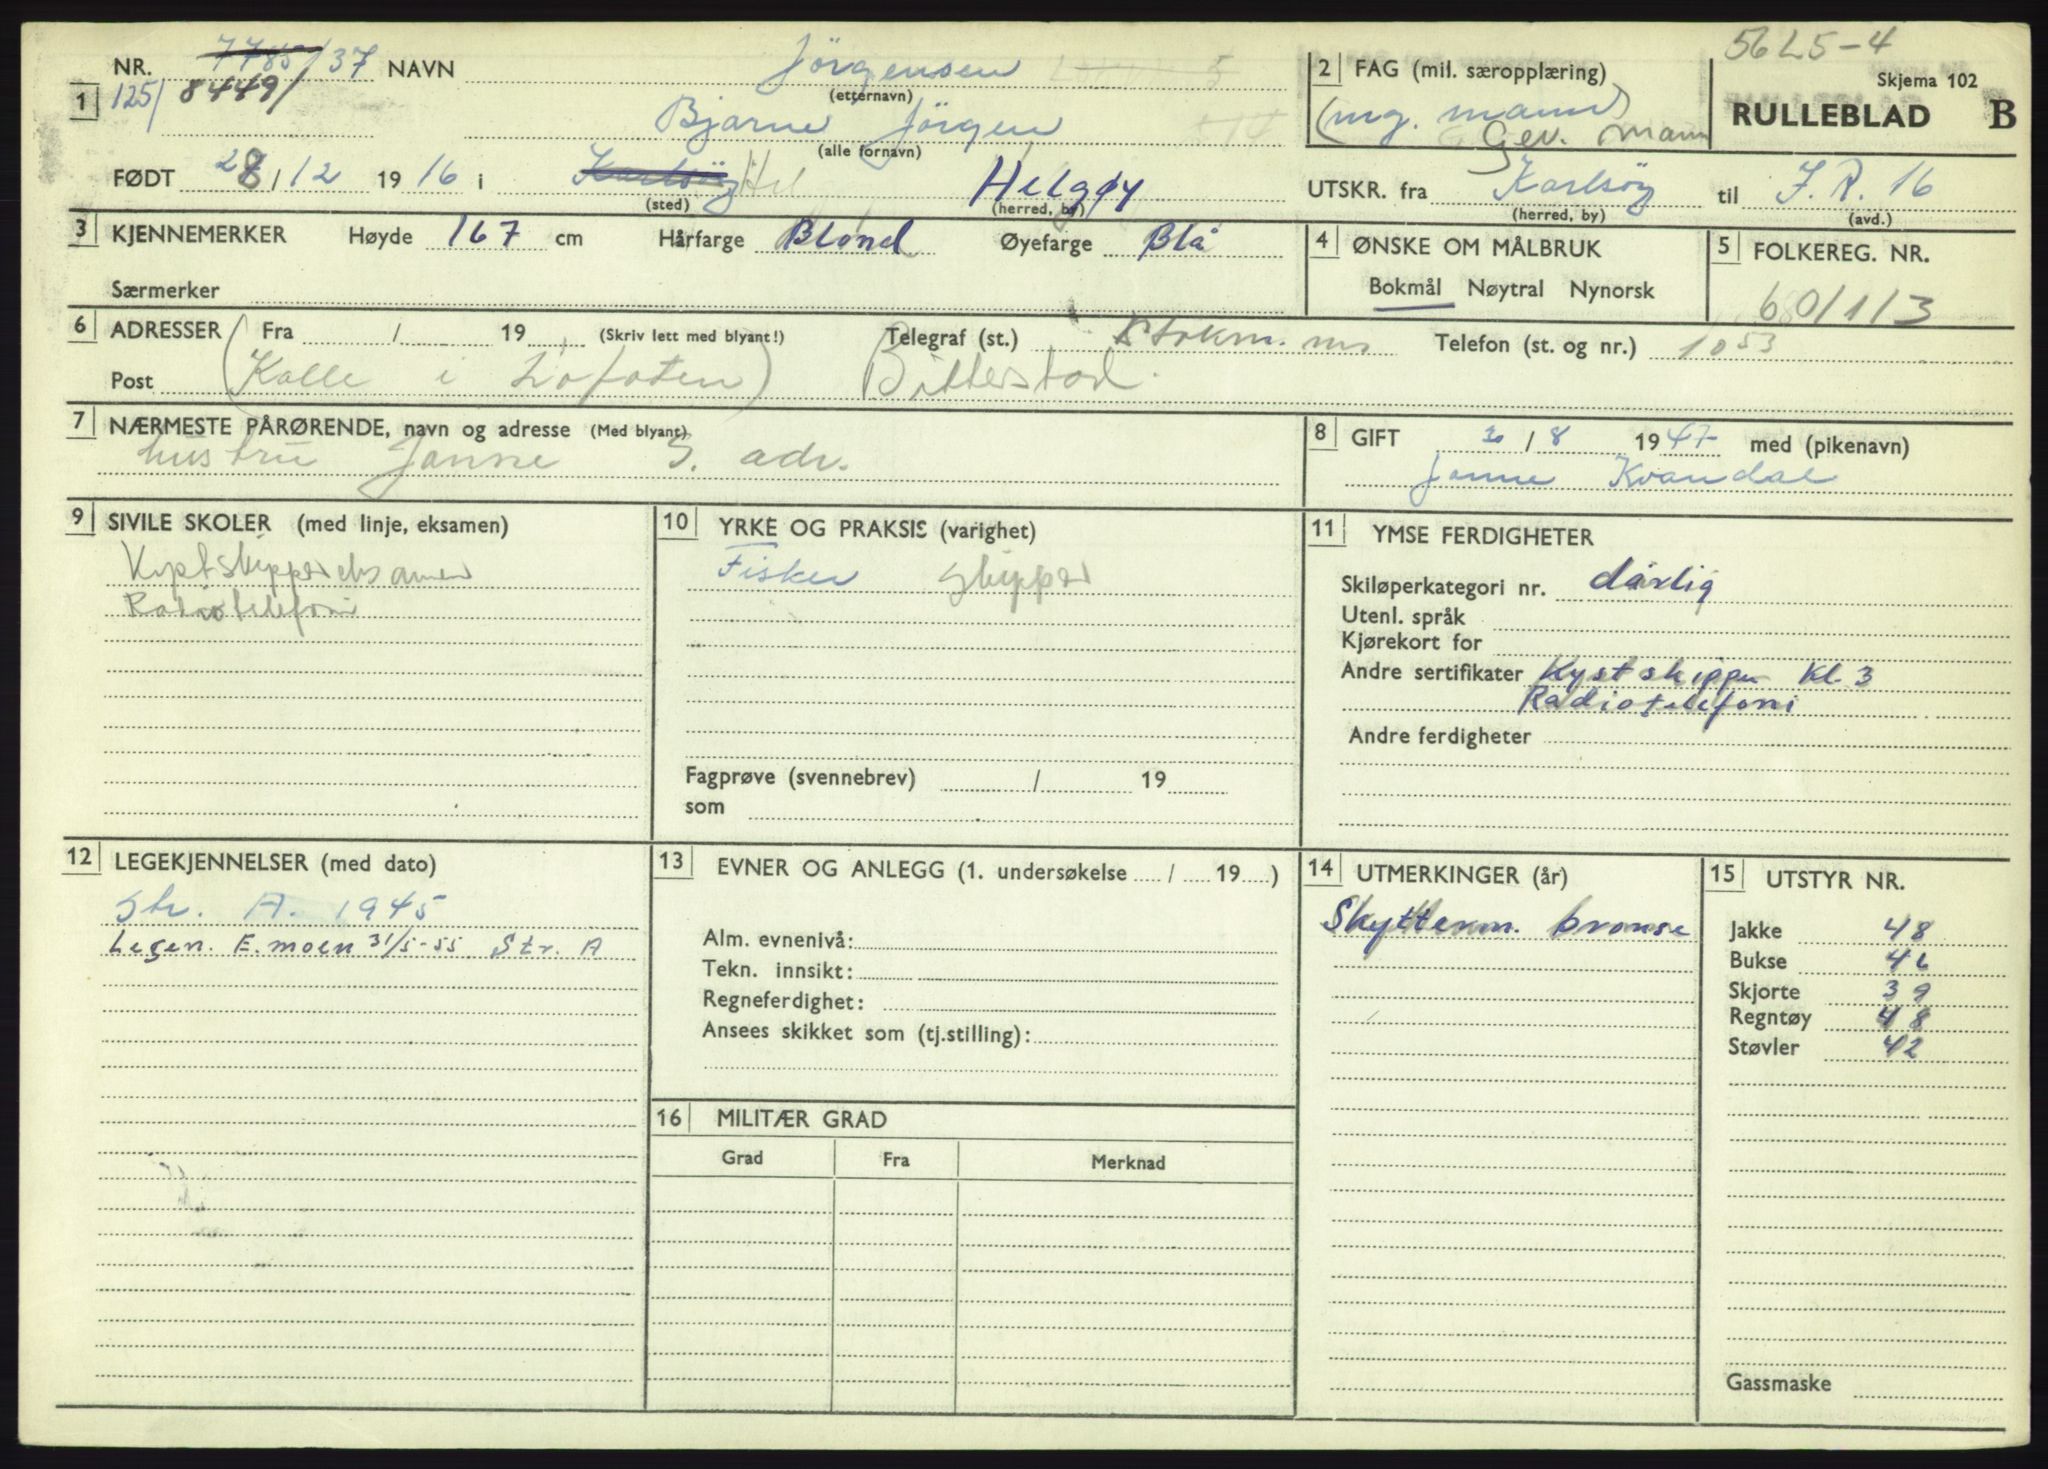 5625-4
Skjema 102
RULLEBLAD B
1 NR. 7785/37 NAVN Jörgensen
(etternavn)
125/ 8449/
Bjarne Jörgen
(alle fornavn)
FØDT 28/12 1916 i Karlsöy Hel Helgøy
(sted) (herred, by)
2 FAG (mil. særopplæring)
(mg. mann)
Gev. mann
UTSKR. fra Karlsöy til I.R. 16
(herred, by) (avd.)
3 KJENNEMERKER Høyde 167 cm Hårfarge Blond Øyefarge Blå
Særmerker
4 ØNSKE OM MÅLBRUK
Bokmål Nøytral Nynorsk
5 FOLKEREG. NR.
60/1/3
6 ADRESSER Fra / 19 (Skriv lett med blyant!) Telegraf (st.) Stokm.ns Telefon (st. og nr.) 1053
Post (Kalle i Lofoten) Bitterstad.
7 NÆRMESTE PÅRØRENDE, navn og adresse (Med blyant)
hustru Janne S. adr.
8 GIFT 30/8 1947 med (pikenavn)
Janne Kvandal
9 SIVILE SKOLER (med linje, eksamen)
Kystskippereksamen
Radiotelefoni
10 YRKE OG PRAKSIS (varighet)
Fisker Skipper
Fagprøve (svennebrev) / 19
som
11 YMSE FERDIGHETER
Skiløperkategori nr. dårlig
Utenl. språk
Kjørekort for
Andre sertifikater Kystskipper Kl. 3
Radiotelefoni
Andre ferdigheter
12 LEGEKJENNELSER (med dato)
Str. A. 1945
Legen. E.moen 31/5-55. Str. A
13 EVNER OG ANLEGG (1. undersøkelse / 19 )
Alm. evnenivå:
Tekn. innsikt:
Regneferdighet:
Ansees skikket som (tj.stilling):
14 UTMERKINGER (år)
Skytterm. bronse
15 UTSTYR NR.
Jakke 48
Bukse 46
Skjorte 39
Regntøy 48
Støvler 42
Gassmaske
16 MILITÆR GRAD
Grad Fra Merknad